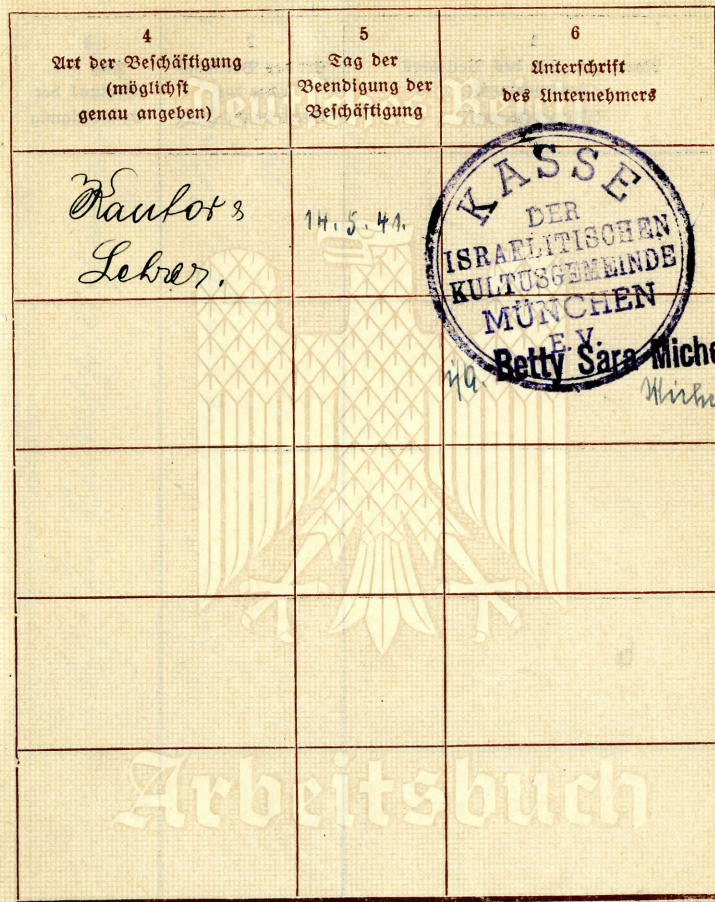 4
Art der Beschäftigung
(möglichst
genau angeben)
5
Tag der
Beendigung der
Beschäftigung
6
Unterschrift
des Unternehmers
Kantor &
Lehrer.
14.5.41.
KASSE
DER
ISRAELITISCHEN
KULTUSGEMEINDE
MÜNCHEN
E.V.
Betty Sara Miche
Deutsches Reich
Arbeitsbuch